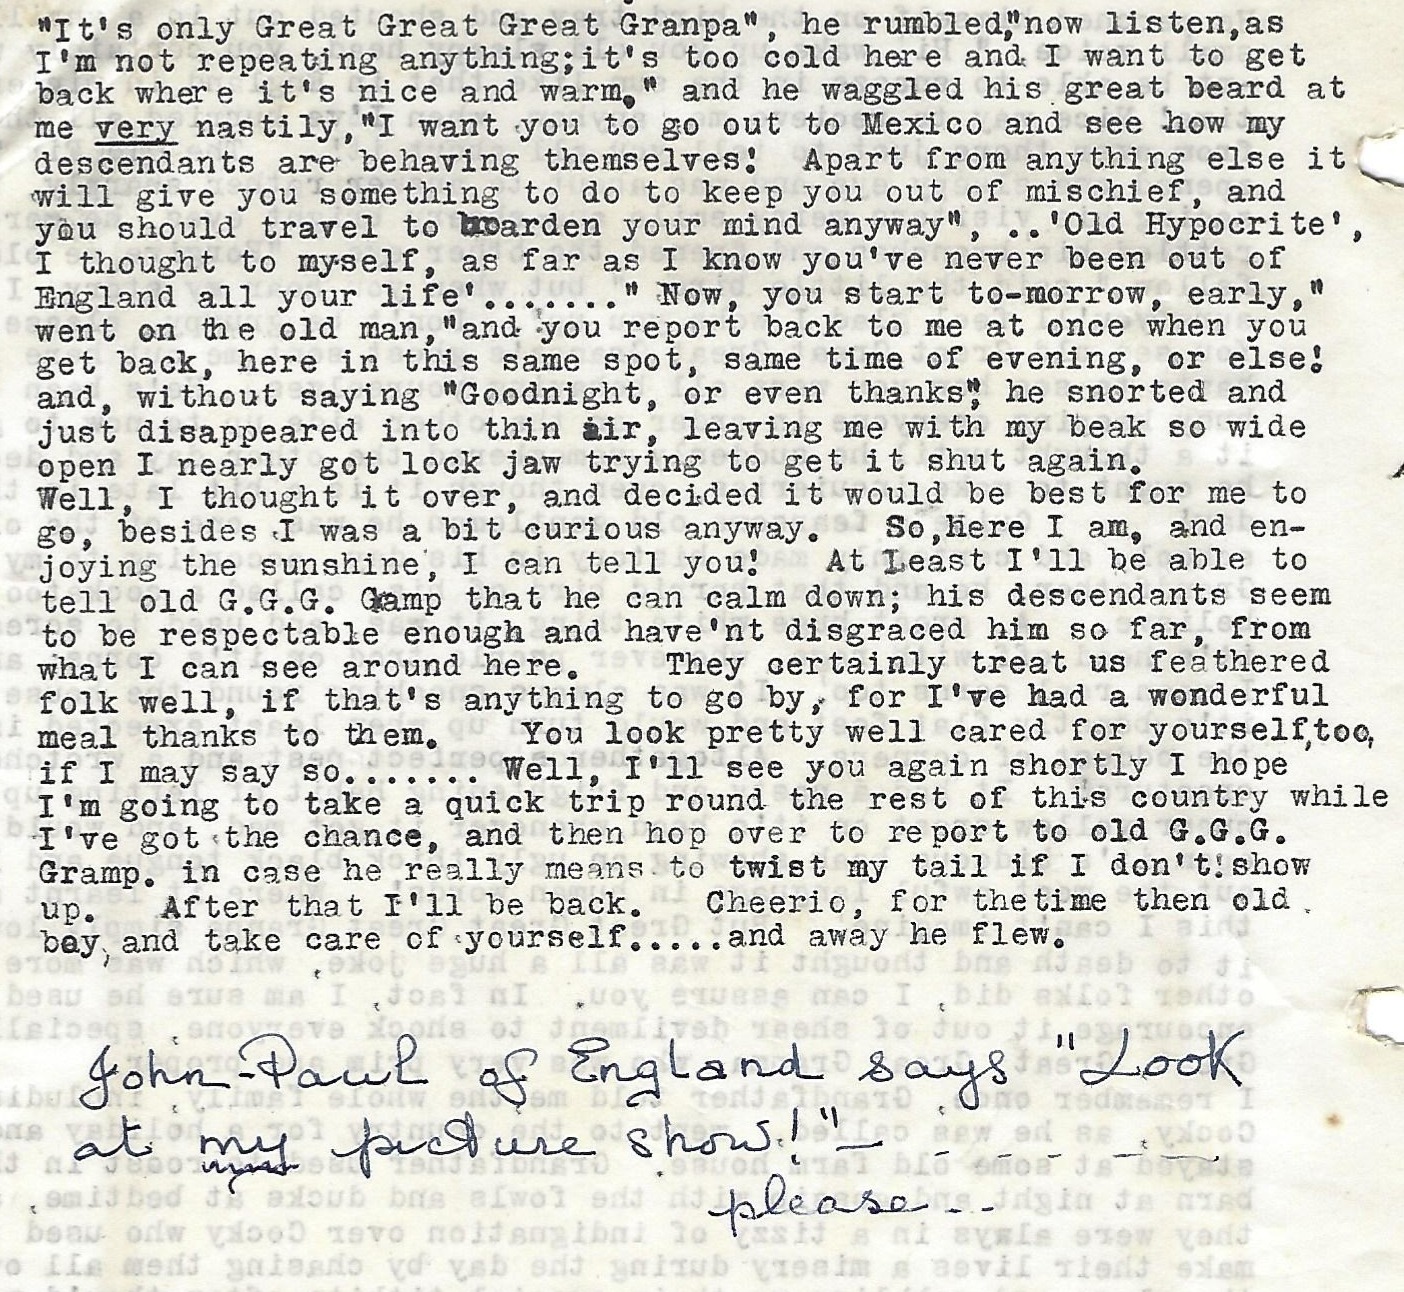 "It's only Great Great Great Great Granpa", he rumbled,"now listen,as
I'm not repeating anything;it's too cold here and I want to get
back where it's nice and warm," and he waggled his great beard at
me very nastily,"I want you to go out to Mexico and see how my
descendants are behaving themselves!  Apart from anything else it
will give you something to do to keep you out of mischief, and
you should travel to    your mind anyway", ..'Old Hypocrite',
I thought to myself, as far as I know you've never been out of
England all your life'......." Now, you start to-morrow, early,"
went on the old man,"and you report back to me at once when you
get back, here in this same spot, same time of evening, or else!
and, without saying "Goodnight, or even thanks", he snorted and
just disappeared into thin air, leaving me with my beak so wide
open I nearly got lock jaw trying to get it shut again.
Well, I thought it over, and decided it would be best for me to
go, besides I was a bit curious anyway.   So,Here I am, and en-
joying the sunshine, I can tell you!   At Least I'll be able to
tell old G.G.G. Gramp that he can calm down; his descendants seem
to be respectable enough and have'nt disgraced him so far, from
what I can see around here.    They certainly treat us feathered
folk well, if that's anything to go by, for I've had a wonderful
meal thanks to them.    You look pretty well cared for yourself,too,
if I may say so....... Well, I'll see you again shortly I hope
I'm going to take a quick trip round the rest of this country while
I've got the chance, and then hop over to report to old G.G.G.
Gramp. in case he really means to twist my tail if I don't! show
up.   After that I'll be back.   Cheerio, for thetime then old
boy, and take care of yourself.....and away he flew.
John-Paul of England says "Look
at my picture show!" - - - - - -
please - -